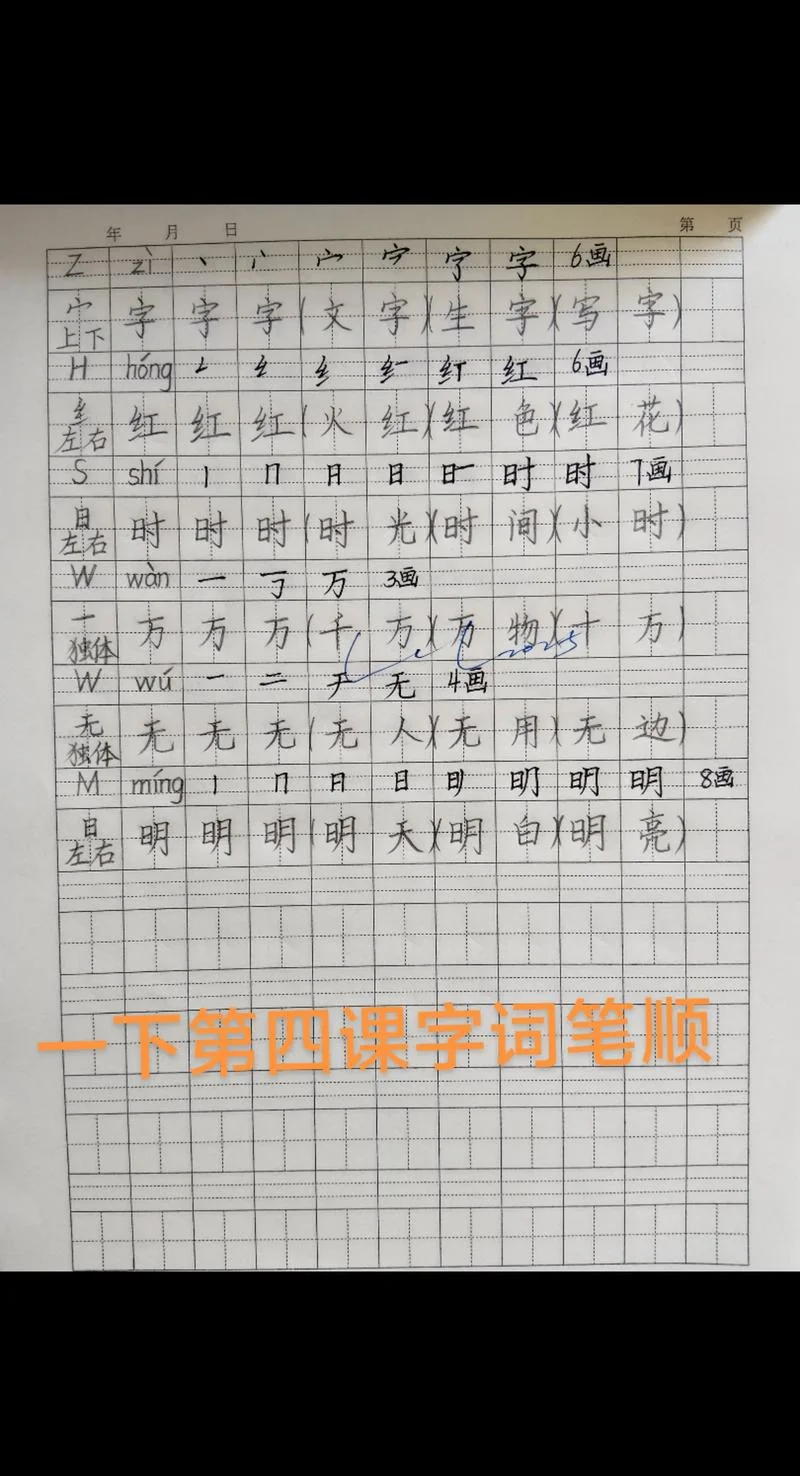 年 月 日 第 页
Z zì 丶 丷 宀 字 6画
宀 上下 字 字 字 (文 字)(生 字)(写 字)
H hóng 纟 红 6画
纟 左右 红 红 红 (火 红)(红 色)(红 花)
S shí 丨 冂 日 日 时 时 7画
日 左右 时 时 时 (时 光)(时 间)(小 时)
W wàn 一 丆 万 3画
一 独体 万 万 万 (千 万)(万 物)(十 万)
W wú 一 二 无 4画
无 独体 无 无 无 (无 人)(无 用)(无 边)
M míng 丨 冂 日 日 明 明 8画
日 左右 明 明 明 (明 天)(明 白)(明 亮)
一下第四课字词笔顺